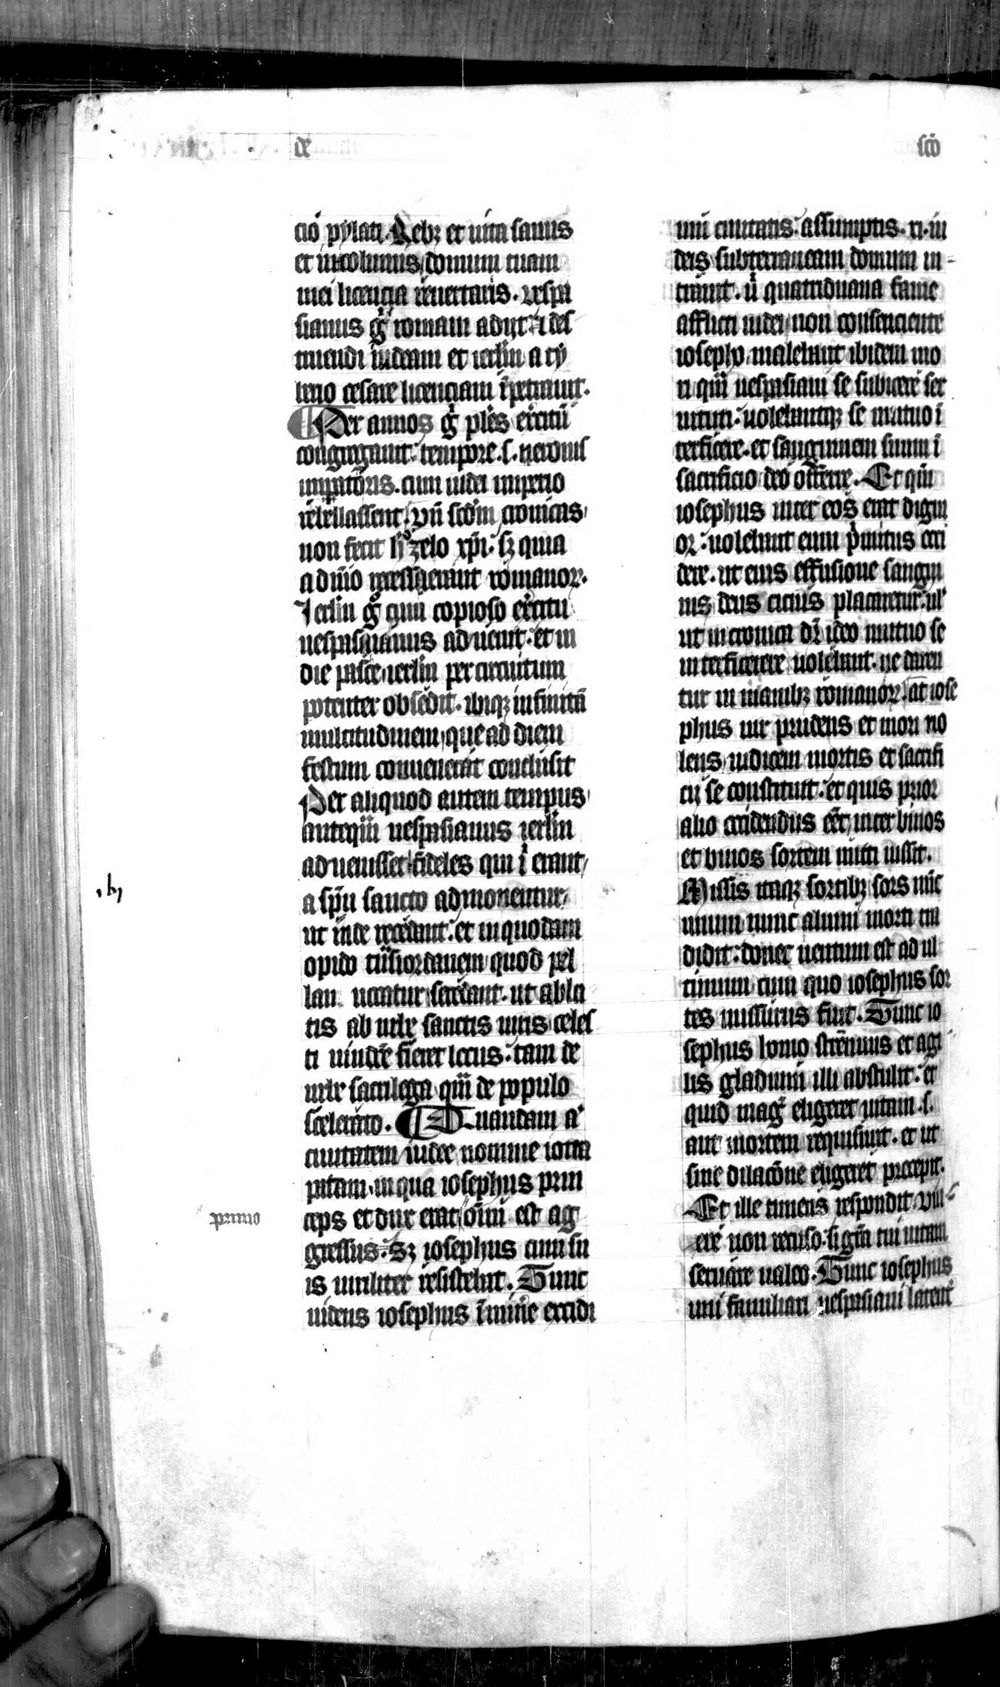 de
scō
cio pylati. Rebz et vita sanus
et incolumis domum tuam
mei licencia reuertaris. vespa
sianus gͦ romam adiit ⁊ des
truendi iudeam et ierlm a ty
berio cesare licenciam īpetrauit.
Per annos gͦ ples exͥcitū
congregauit. tempore .s. neronis
impatoris. cum iudei imperio
rebellassent. vn̄ scdm cronicas
non fecit hͦ zelo xp̄i. sz quia
a dn̄io recesserant romanoꝝ.
Ierlm gͦ cum copioso exͥcitu
uespasyanus aduenit. et in
die pasce ierlm per circuitum
potenter obsedit. ibiqz infinitā
multitudinem que ad diem
festum conuenerat conclusit
Per aliquod autem tempus
anteqm̄ uespasianus ierlm
aduenisset fideles qui ī erant
a spū sancto admonentur
ut inde recedant. et in quodam
opido trāsiordanem quod pel
lam uocatur secedant. ut abla
tis ab urbe sanctis uiris celes
ti uindcē fieret locus. tam de
urbe sacrilega qm̄ de populo
scelerato. Quandam aͭ
ciuitatem iudee nomine iotta
patam in qua iosephus prin
ceps et dux erat oīm est ag
gressus. Sz iosephus cum su
is uiriliter resistebat. Tunc
uidens iosephus īmine excidi
.b.
primo
um ciuitatis. assumptis .xi. iu
deis subterraneam domum in
trauit. vͥ quatriduana fame
afflicti iudei non consenciente
iosepho. malebant ibidem mo
ri qm̄ uespasiani se subicere ser
uituti. uolebantqz se mutuo ī
terficere. et sanguinem suum ī
sacrificio deo offerre. Et qm̄
iosephus inter eos erat digni
or. uolebant eum pͥmitus occi
dere. ut eius effusione sangui
nis deus cicius placaretur. ul
ut in cronica dr̄ ideo mutuo se
interficere uolebant. ne daren
tur in manibz romanoꝝ. at iose
phus uir prudens et mori no
lens iudicem mortis et sacrifi
cij se constituit. et quis prior
alio occidendus eēt inter binos
et binos sortem mitti iussit.
Missis itaqz sortibz sors nūc
unum nunc alium morti tra
didit. donec uentum est ad ul
timum cum quo iosephus sor
tes missurus fuit. Tunc io
sephus homo strēnuus et agi
lis gladium illi abstulit. et
quid magͥ eligeret uitam .s.
aut mortem requisiuit. et ut
sine dilacōne eligeret precepit.
Et ille timens respondit. viu
ere non recuso. si grā tui uitam
seruare ualeo. Tunc iosephus
uni familiari uespasiani latenͭ